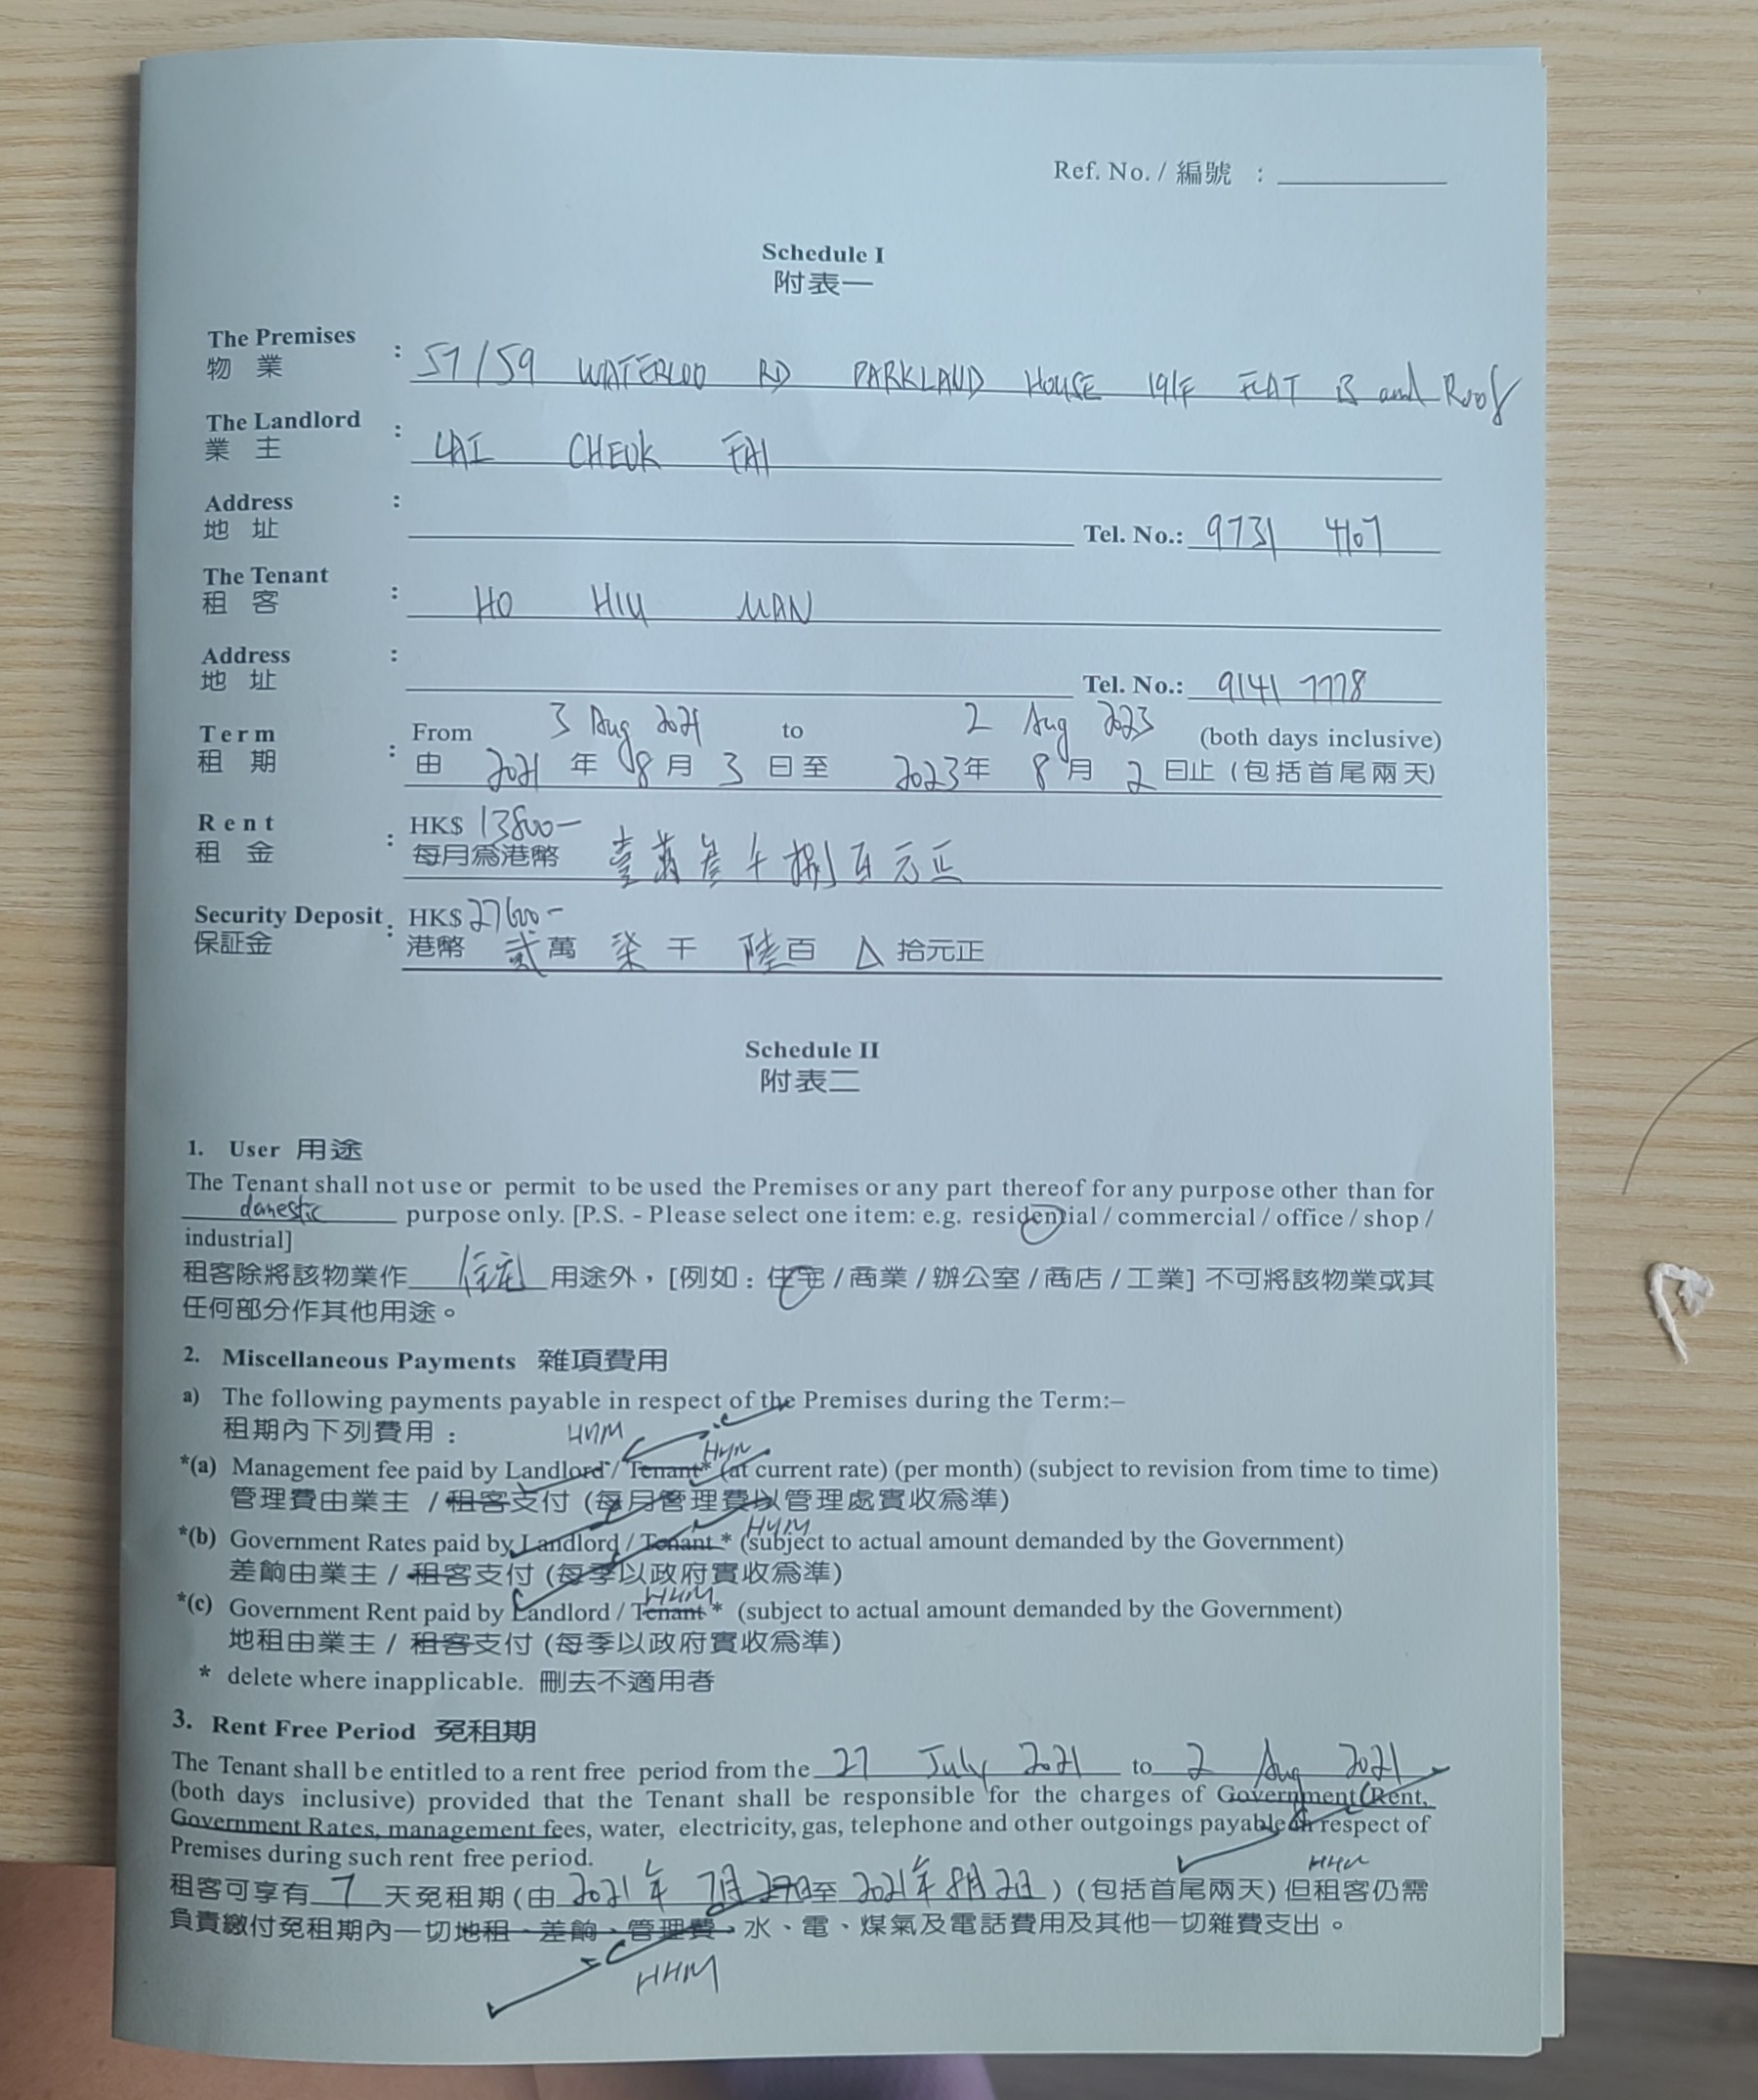 Ref. No. / 編號 :
Schedule I
附表一
The Premises
物 業 : 57/59 WATERLOO RD PARKLAND HOUSE 19/F FLAT B and Roof
The Landlord
業 主 : LAI CHEUK FAI
Address
地 址 : Tel. No.: 9731 4107
The Tenant
租 客 : HO HIU MAN
Address
地 址 : Tel. No.: 9141 7778
Term From 3 Aug 2021 to 2 Aug 2023 (both days inclusive)
租 期 : 由 2021 年 8 月 3 日至 2023年 8 月 2 日止 (包括首尾兩天)
Rent HK$ 13800-
租 金 : 每月為港幣 壹萬叁千捌百元正
Security Deposit : HK$ 27600-
保証金 港幣 貳萬 柒 千 陸百 △ 拾元正
Schedule II
附表二
1. User 用途
The Tenant shall not use or permit to be used the Premises or any part thereof for any purpose other than for
domestic purpose only. [P.S. - Please select one item: e.g. residential / commercial / office / shop /
industrial]
租客除將該物業作 住宅 用途外，[例如：住宅 / 商業 / 辦公室 / 商店 / 工業] 不可將該物業或其
任何部分作其他用途。
2. Miscellaneous Payments 雜項費用
a) The following payments payable in respect of the Premises during the Term:–
租期內下列費用：
HHM HHM
*(a) Management fee paid by Landlord / Tenant* (at current rate) (per month) (subject to revision from time to time)
管理費由業主 / 租客支付 (每月管理費以管理處實收為準)
HHM
*(b) Government Rates paid by Landlord / Tenant * (subject to actual amount demanded by the Government)
差餉由業主 / 租客支付 (每季以政府實收為準)
HHM
*(c) Government Rent paid by Landlord / Tenant * (subject to actual amount demanded by the Government)
地租由業主 / 租客支付 (每季以政府實收為準)
* delete where inapplicable. 刪去不適用者
3. Rent Free Period 免租期
The Tenant shall be entitled to a rent free period from the 27 July 2021 to 2 Aug 2021
(both days inclusive) provided that the Tenant shall be responsible for the charges of Government Rent,
Government Rates, management fees, water, electricity, gas, telephone and other outgoings payable in respect of
Premises during such rent free period.
HHM
租客可享有 7 天免租期 (由 2021年 7月 27日至 2021年 8月 2日 ) (包括首尾兩天) 但租客仍需
負責繳付免租期內一切地租、差餉、管理費、水、電、煤氣及電話費用及其他一切雜費支出。
HHM